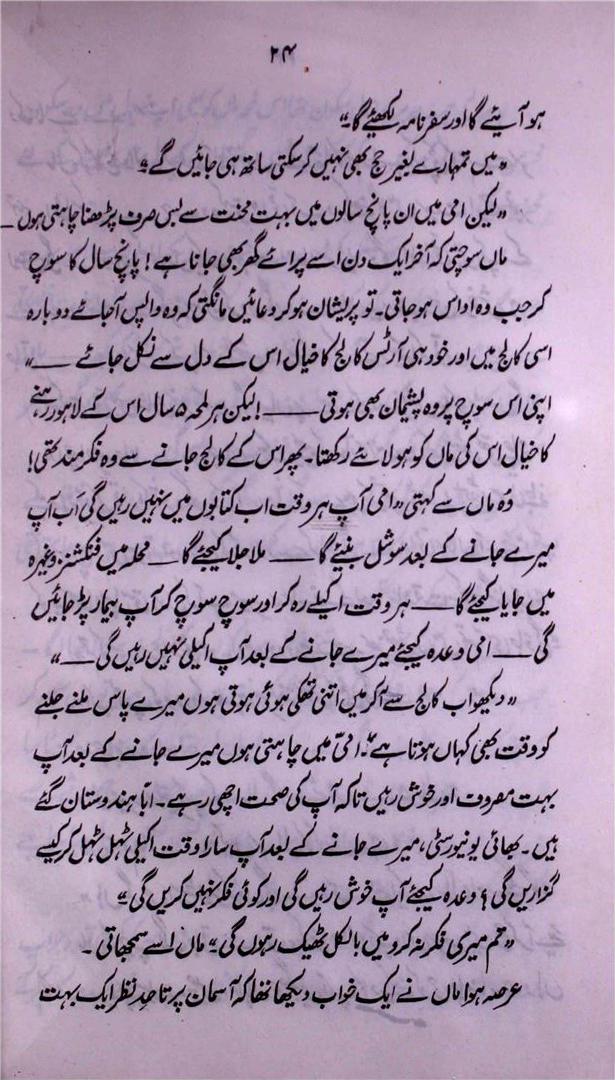 ۲۴
ہو آیئے گا اور سفرنامہ لکھئے گا۔“
”میں تمہارے بغیر حج بھی نہیں کر سکتی ساتھ ہی جائیں گے۔“
”لیکن امی میں ان پانچ سالوں میں بہت محنت سے بس صرف پڑھنا چاہتی ہوں —
ماں سوچتی کہ آخر ایک دن اسے پرائے گھر بھی جانا ہے! پانچ سال کا سوچ
کر جب وہ اداس ہو جاتی۔ تو پریشان ہو کر دعائیں مانگتی کہ وہ واپس آجائے دوبارہ
اسی کالج میں اور خود ہی آرٹس کالج کا خیال اس کے دل سے نکل جائے —“
اپنی اس سوچ پر وہ پشیمان بھی ہوتی —— ! لیکن ہر لمحہ ۵ سال اس کے لاہور رہنے
کا خیال اس کی ماں کو ہولائے رکھتا۔ پھر اس کے کالج جانے سے وہ فکر مند تھی!
وُہ ماں سے کہتی ”امی آپ ہر وقت اب کتابوں میں نہیں رہیں گی اَب آپ
میرے جانے کے بعد سوشل بنیئے گا —— ملا جلا کیجئے گا — محلہ میں فنکشنز وغیرہ
میں جایا کیجئے گا —— ہر وقت اکیلے رہ کر اور سوچ سوچ کر آپ بیمار پڑ جائیں
گی —— امی وعدہ کیجئے میرے جانے کے بعد آپ اکیلی نہیں رہیں گی —“
”دیکھو اب کالج سے آکر میں اتنی تھکی ہوئی ہوتی ہوں میرے پاس ملنے جلنے
کو وقت بھی کہاں ہوتا ہے“۔ امیّ میں چاہتی ہوں میرے جانے کے بعد آپ
بہت مصروف اور خوش رہیں تاکہ آپ کی صحت اچھی رہے۔ ابّا ہندوستان گئے
ہیں۔ بھائی یونیورسٹی، میرے جانے کے بعد آپ سارا وقت اکیلی ٹہل ٹہل کر کیسے
گزاریں گی؟ وعدہ کیجئے آپ خوش رہیں گی اور کوئی فکر نہیں کریں گی۔“
”تم میری فکر نہ کرو میں بالکل ٹھیک رہوں گی۔“ ماں اسے سمجھاتی۔
عرصہ ہوا ماں نے ایک خواب دیکھا تھا کہ آسمان پر تا حدِ نظر ایک بہت